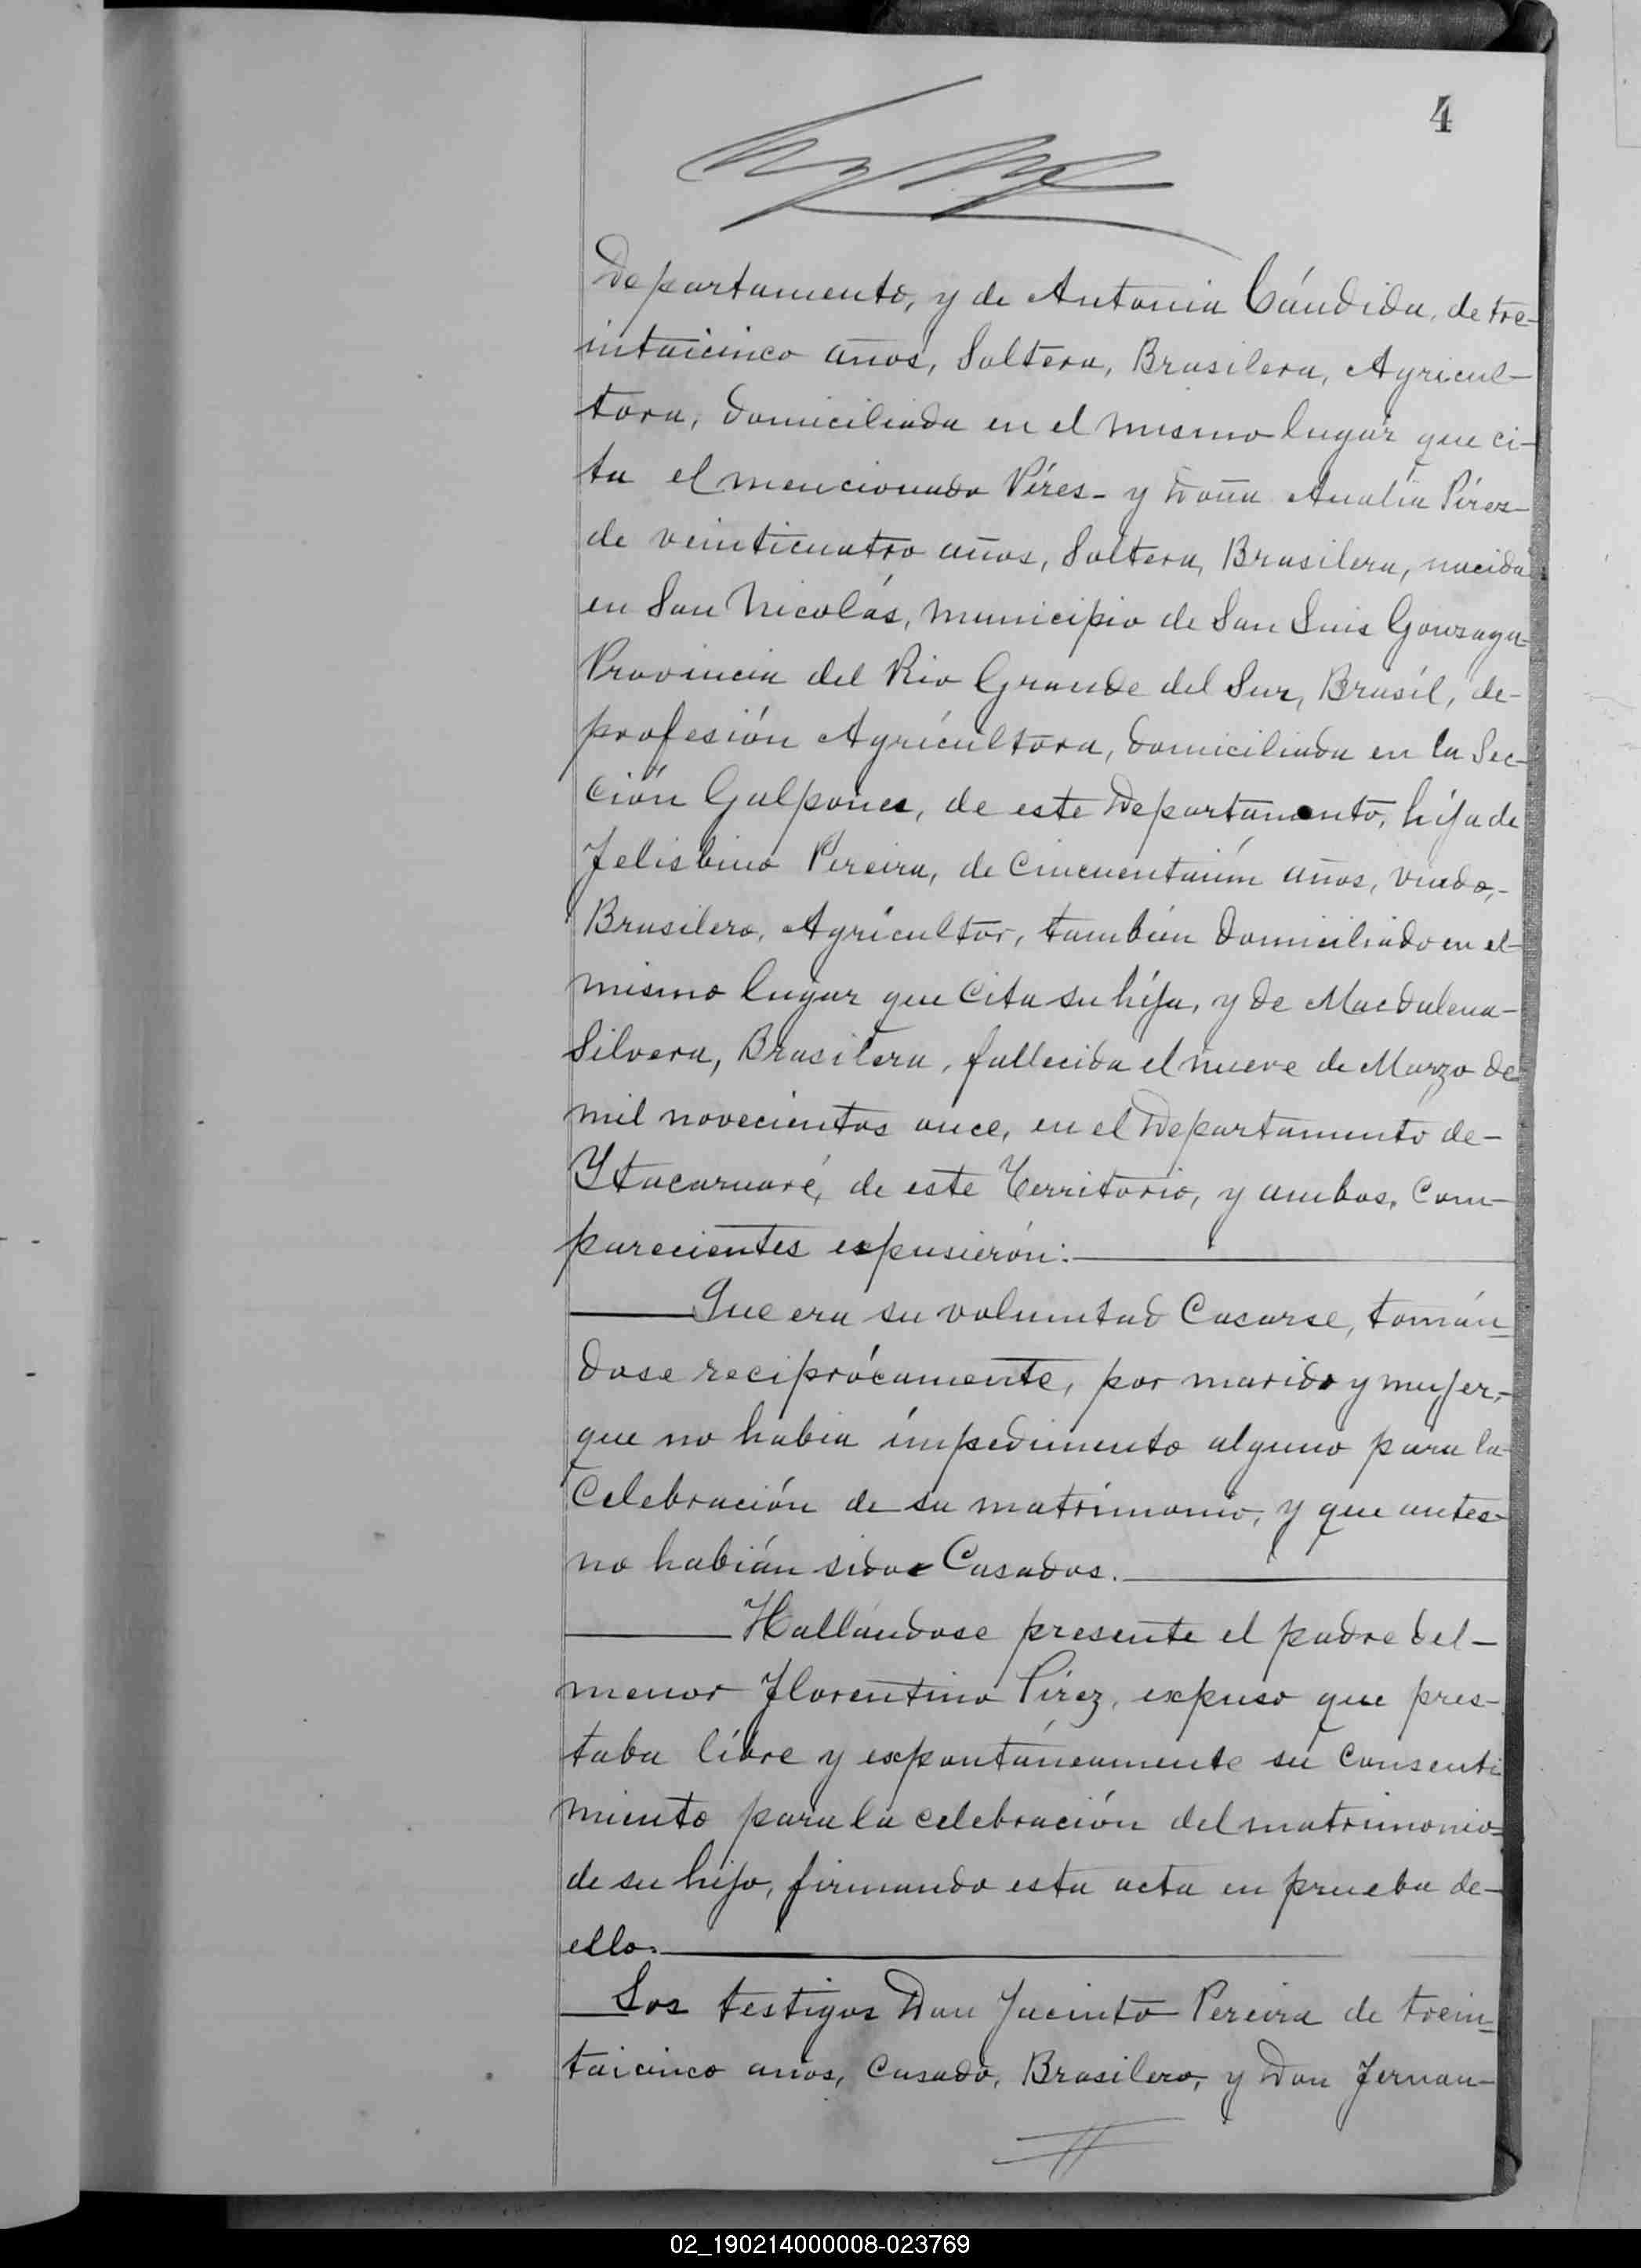 4
Departamento, y de Antonia Cándida, de tre-
intaicinco años, Soltera, Brasilera, Agricul-
tora, domiciliada en el mismo lugar que ci-
ta el mencionado Píres- y Doña Analía Pírez-
de veinticuatro años, Soltera, Brasilera, nacida
en San Nicolás, municipio de San Luis Gonzaga-
Provincia del Rio Grande del Sur, Brasíl, de-
profesión Agrícultora, domiciliada en la Sec-
ción Galpones, de este Departamento, híja de
Felisbino Pereira, de Cincuentaiún años, viudo,-
Brasilero, Agrícultor, tambien domiciliado en el-
mismo lugar que Cita su híja, y de Macdalena-
Silvera, Brasilera, fallecida el nueve de Marzo de
mil novecientos once, en el Departamento de-
Ytacaruaré, de este Territorio, y ambos, Com-
parecientes expusierón:
Que era su voluntad Casarse, tomán=
dose reciprócamente, por marido y mujer,-
que no habia impedimento alguno para la-
Celebración de su matrímonio, y que antes-
no habían sidos Casados.
Hallándose presente el padre del-
menor Florentino Pírez, expuso que pres-
taba líbre y expontáneamente su Consenti
miento para la celebración del matrimonio=
de su hijo, firmando esta acta en prueba de-
ello.
Los testigos Don Jacinto Pereira de trein=
taicinco años, Casado, Brasilero, y Don Fernan-
02_190214000008-023769